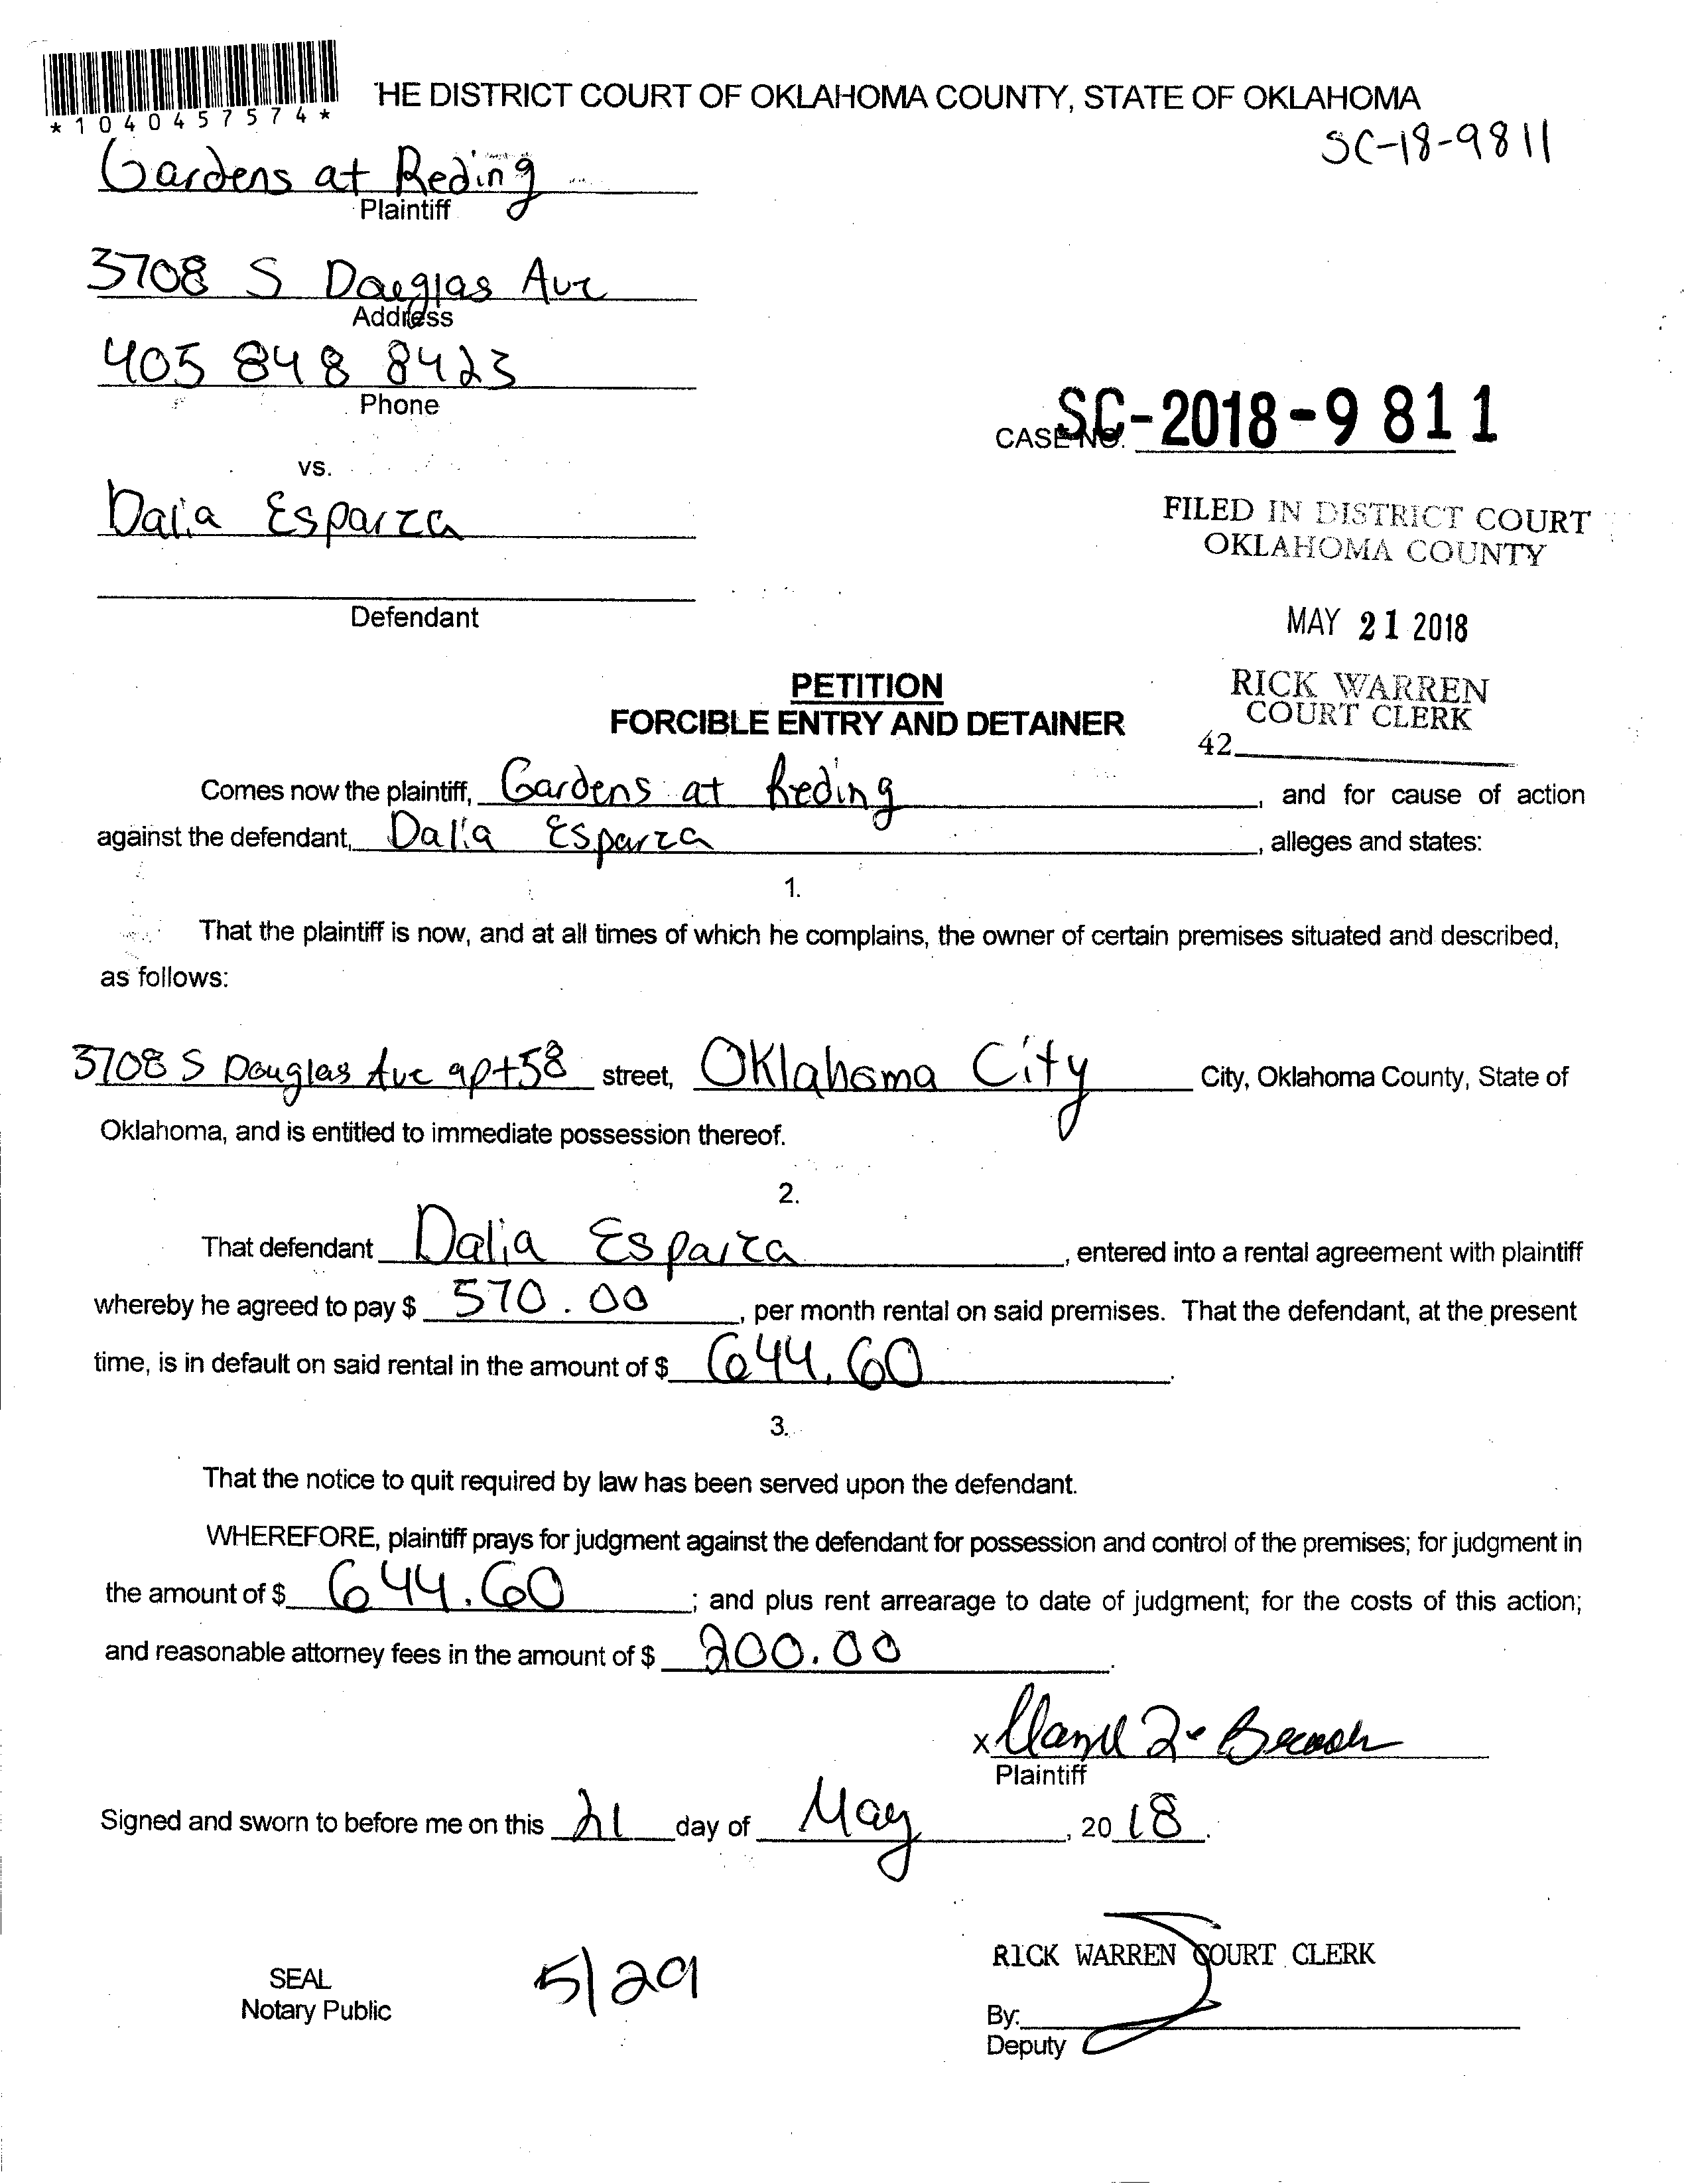 *1040457574*
HE DISTRICT COURT OF OKLAHOMA COUNTY, STATE OF OKLAHOMA
SC-18-9811
Gardens at Reding
Plaintiff
3708 S Douglas Ave
Address
405 848 8423
Phone
CASE NO. SC-2018-9811
vs.
Dalia Esparza
FILED IN DISTRICT COURT
OKLAHOMA COUNTY
Defendant
MAY 21 2018
PETITION
FORCIBLE ENTRY AND DETAINER
RICK WARREN
COURT CLERK
42
Comes now the plaintiff, Gardens at Reding, and for cause of action
against the defendant, Dalia Esparza, alleges and states:
1.
That the plaintiff is now, and at all times of which he complains, the owner of certain premises situated and described,
as follows:
3708 S Douglas Ave apt 58 street, Oklahoma City City, Oklahoma County, State of
Oklahoma, and is entitled to immediate possession thereof.
2.
That defendant Dalia Esparza, entered into a rental agreement with plaintiff
whereby he agreed to pay $ 570.00, per month rental on said premises. That the defendant, at the present
time, is in default on said rental in the amount of $ 644.60.
3.
That the notice to quit required by law has been served upon the defendant.
WHEREFORE, plaintiff prays for judgment against the defendant for possession and control of the premises; for judgment in
the amount of $ 644.60; and plus rent arrearage to date of judgment; for the costs of this action;
and reasonable attorney fees in the amount of $ 200.00.
X
Plaintiff
Signed and sworn to before me on this 21 day of May, 2018.
RICK WARREN COURT CLERK
SEAL
Notary Public
5/29
By:
Deputy